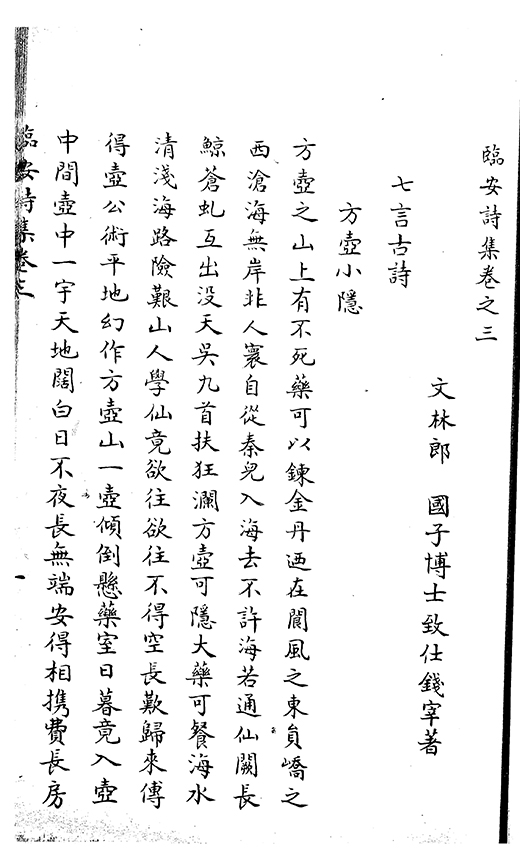 臨安詩集卷之三
文林郎　國子博士致仕錢宰著
七言古詩
方壺小隱
方壺之山上有不死藥可以鍊金丹迺在閬風之東負嶠之
西滄海無岸非人寰自從秦皃入海去不許海若通仙闕長
鯨蒼虬互出没天吳九首扶狂瀾方壺可隱大藥可餐海水
清淺海路險艱山人學仙竟欲往欲往不得空長歎歸來傳
得壺公術平地幻作方壺山一壺傾倒懸藥室日暮竟入壺
中間壺中一宇天地闊白日不夜長無端安得相携費長房
臨安詩集卷三
一